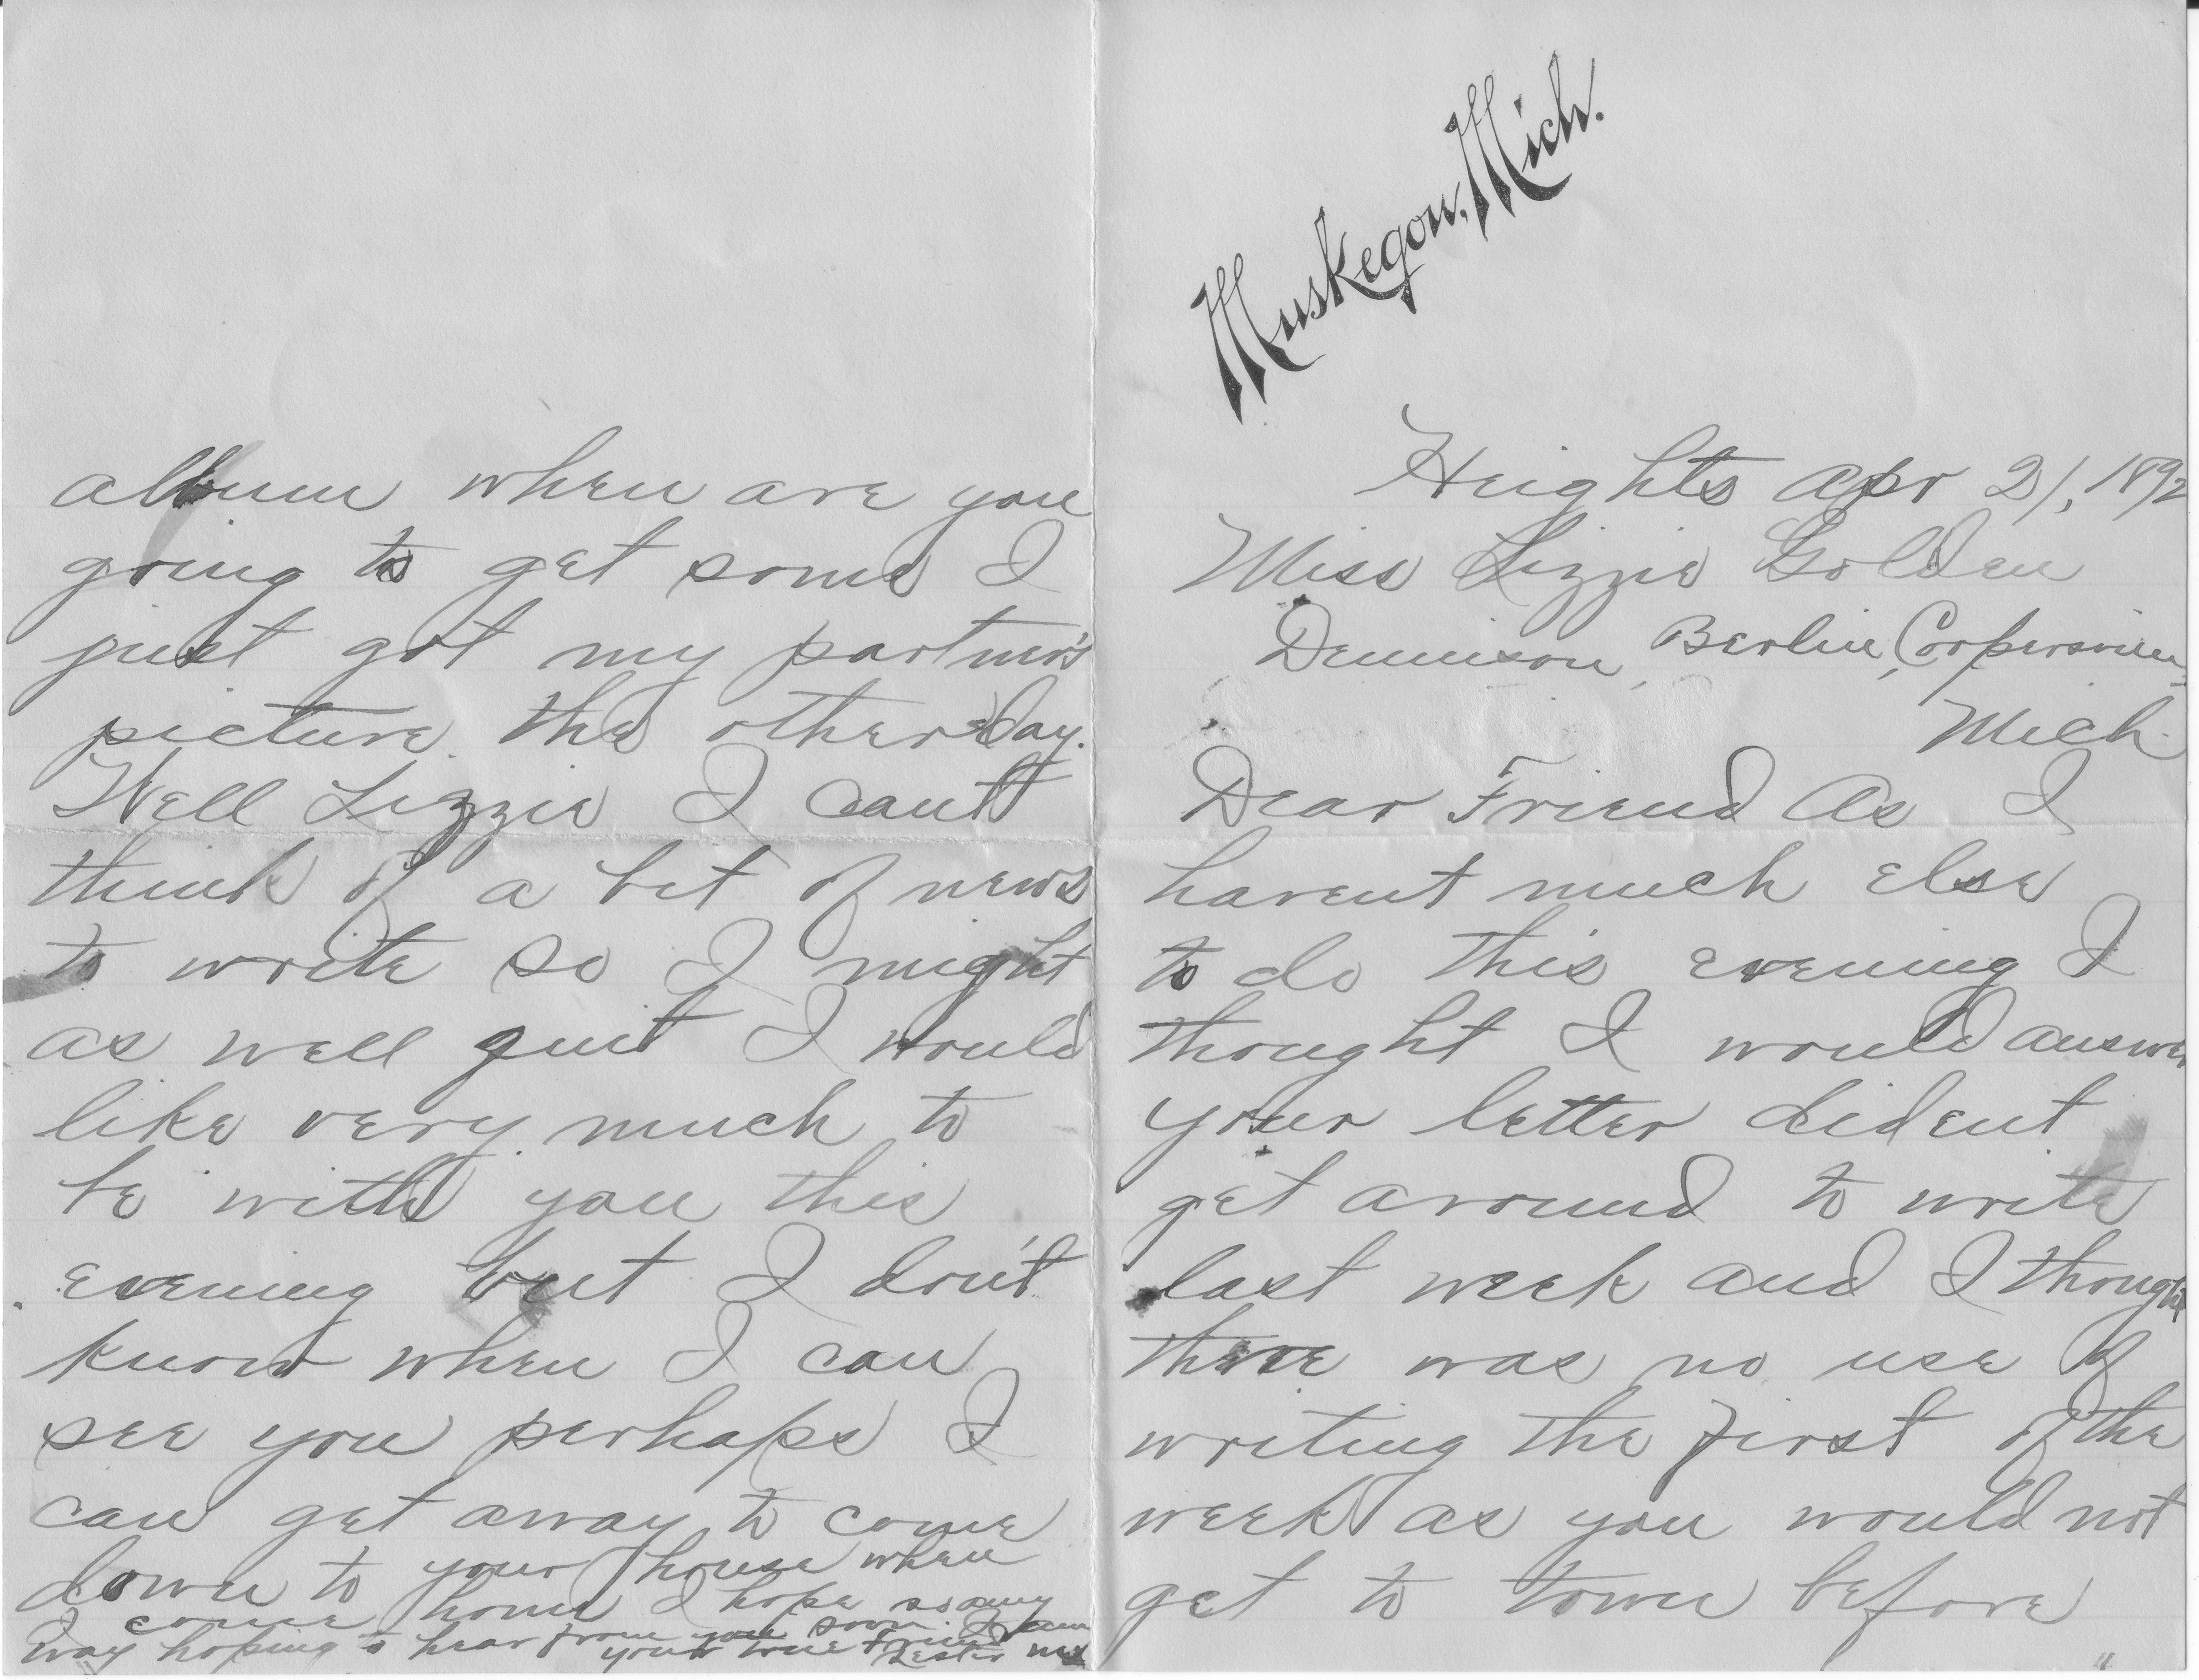 Muskegon, Mich.
Heights Apr 21, 1892
Miss Lizzie Golden
Dennison, Berlin, Coopersville,
Mich
Dear Friend As I
havent much else
to do this evening I
thought I would answer
your letter dident
get around to write
last week and I thought
there was no use of
writing the first of the
week as you would not
get to town before
album when are you
going to get some I
just got my partner's
picture the other day.
Well Lizzie I can't
think of a bit of news
to write so I might
as well quit I would
like very much to
be with you this
evening but I don't
know when I can
see you perhaps I
can get away to come
down to your house when
I come home I hope so any
way hoping to hear from you soon I am
your true Friend
Lester